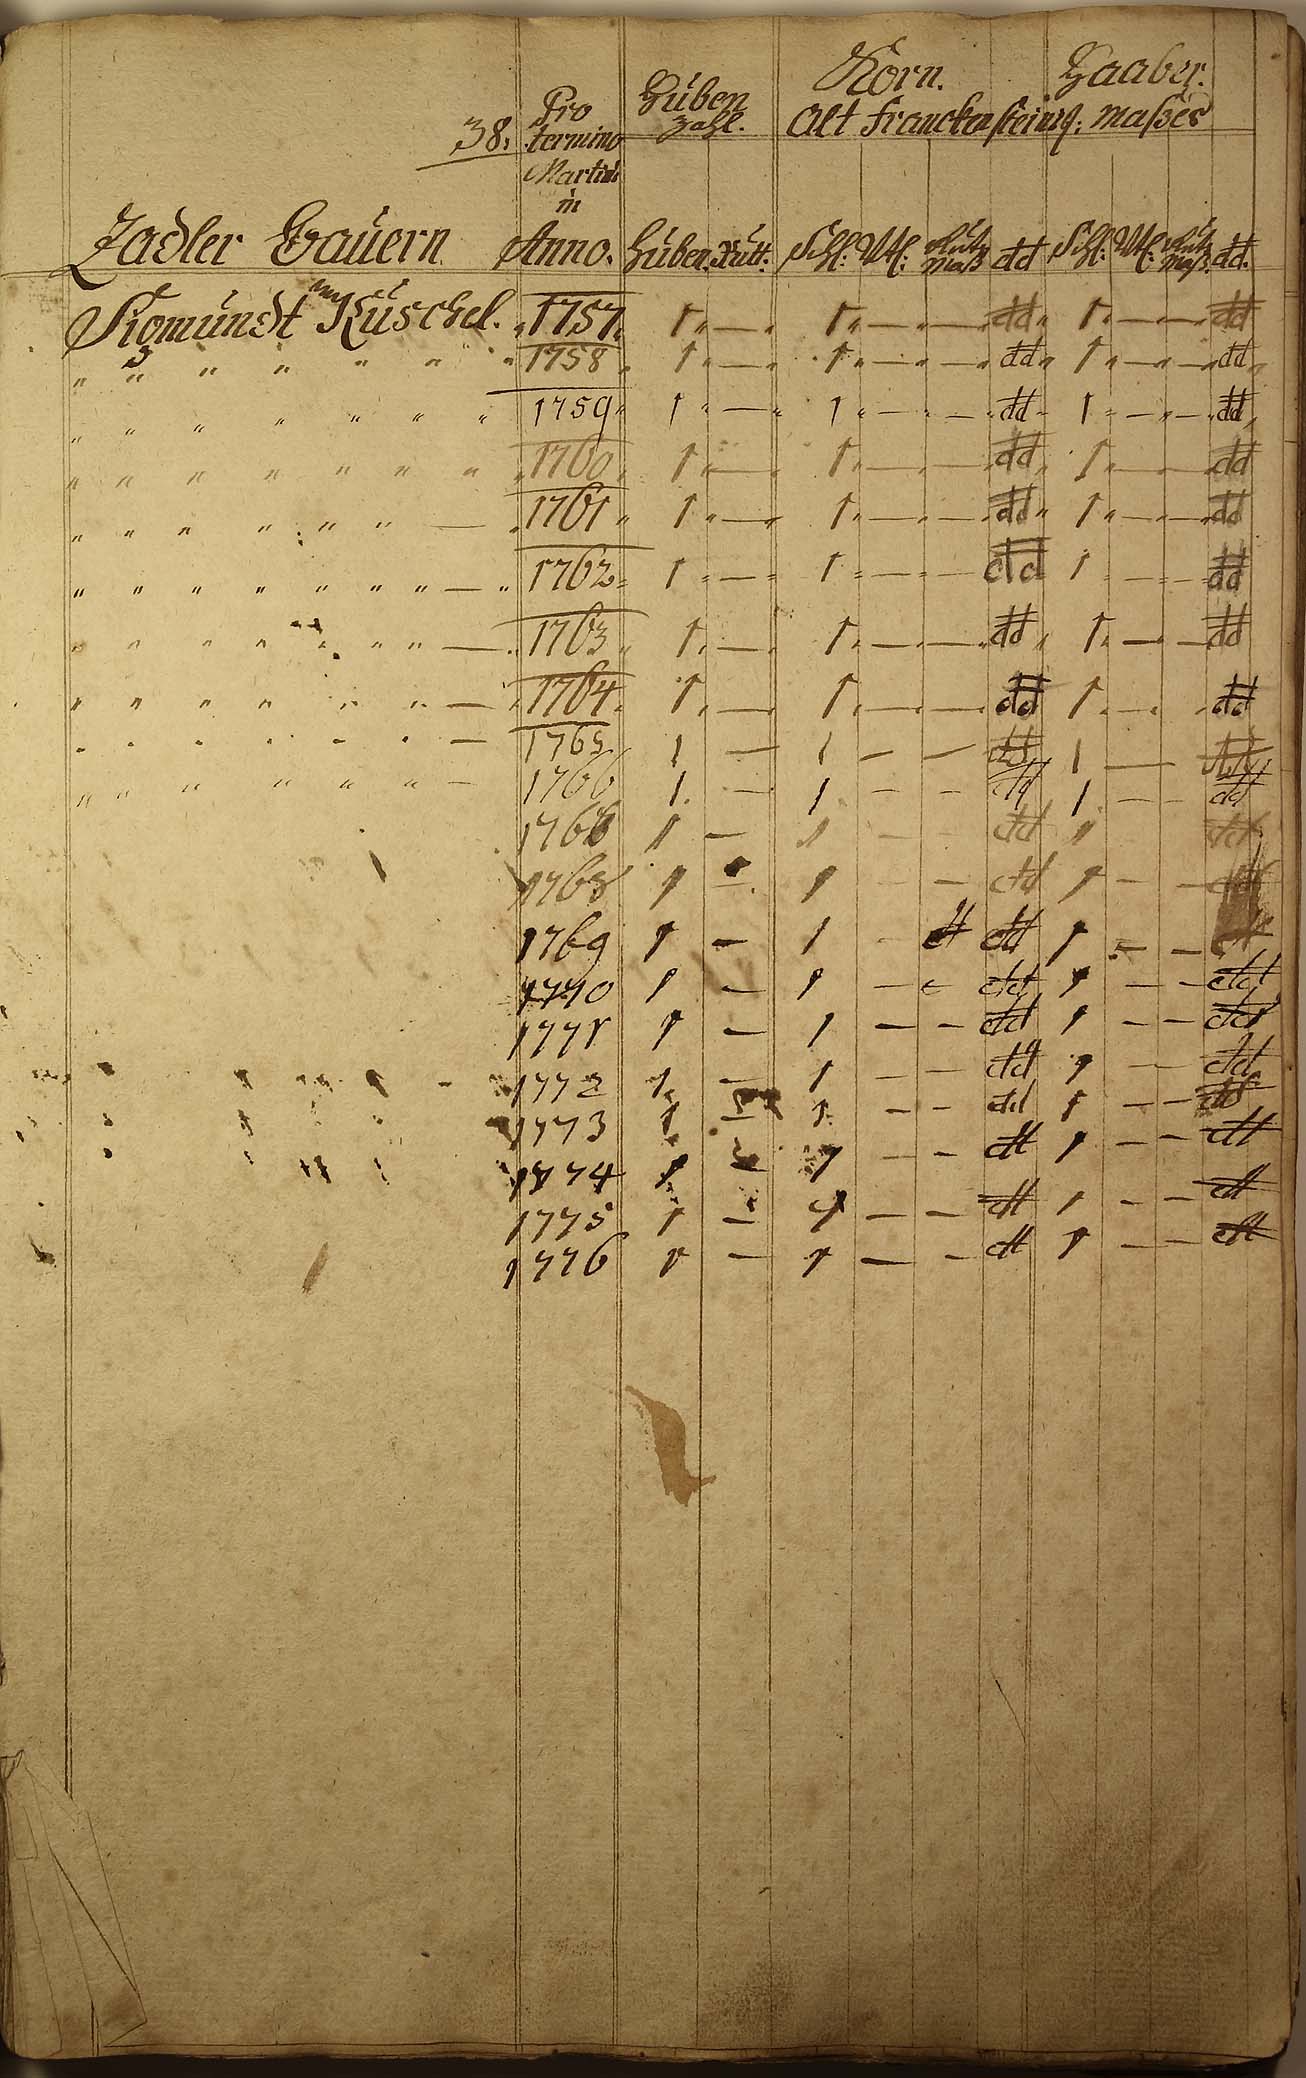 Korn. Haaber.
Pro Huben
38. termino Zahl. Alt Franckensteinq: Maßes
Martini
in
Zadler Bauern Anno. Huben. Rutt: Schl: Vtl: Maß dd Schl: Vtl: Maß. dd.
Sigmundt Küschel. 1757. 1 — 1 — — dd 1 — — dd
" " " " " " " 1758 1 — 1 — — dd 1 — — dd
" " " " " " " 1759 1 — 1 — — dd 1 — — dd
" " " " " " " 1760 1 — 1 — — dd 1 — — dd
" " " " " " — 1761 1 — 1 — — dd 1 — — dd
" " " " " " " — " 1762 1 — 1 — — dd 1 — — dd
" " " " " " " — 1763 1 — 1 — — dd 1 — — dd
" " " " " " — 1764 1 — 1 — — dd 1 — — dd
" " " " " " — 1765 1 — 1 — — dd 1 — dd
" " " " " " — 1766 1 — 1 — — dd 1 — — dd
1768 1 — 1 — — dd 1 dd
1768 1 — 1 — — dd 1 — — dd
1769 1 — 1 — dd 1 — — dd
1770 1 — 1 — dd 1 — — dd
1771 1 — 1 — — dd 1 — — dd
1772 1 — 1 — — dd 1 — — dd
1773 1 — 1 — — dd 1 — — dd
1774 1 — 1 — — dd 1 — — dd
1775 1 — 1 — — dd 1 — — dd
1776 1 — 1 — — dd 1 — — dd